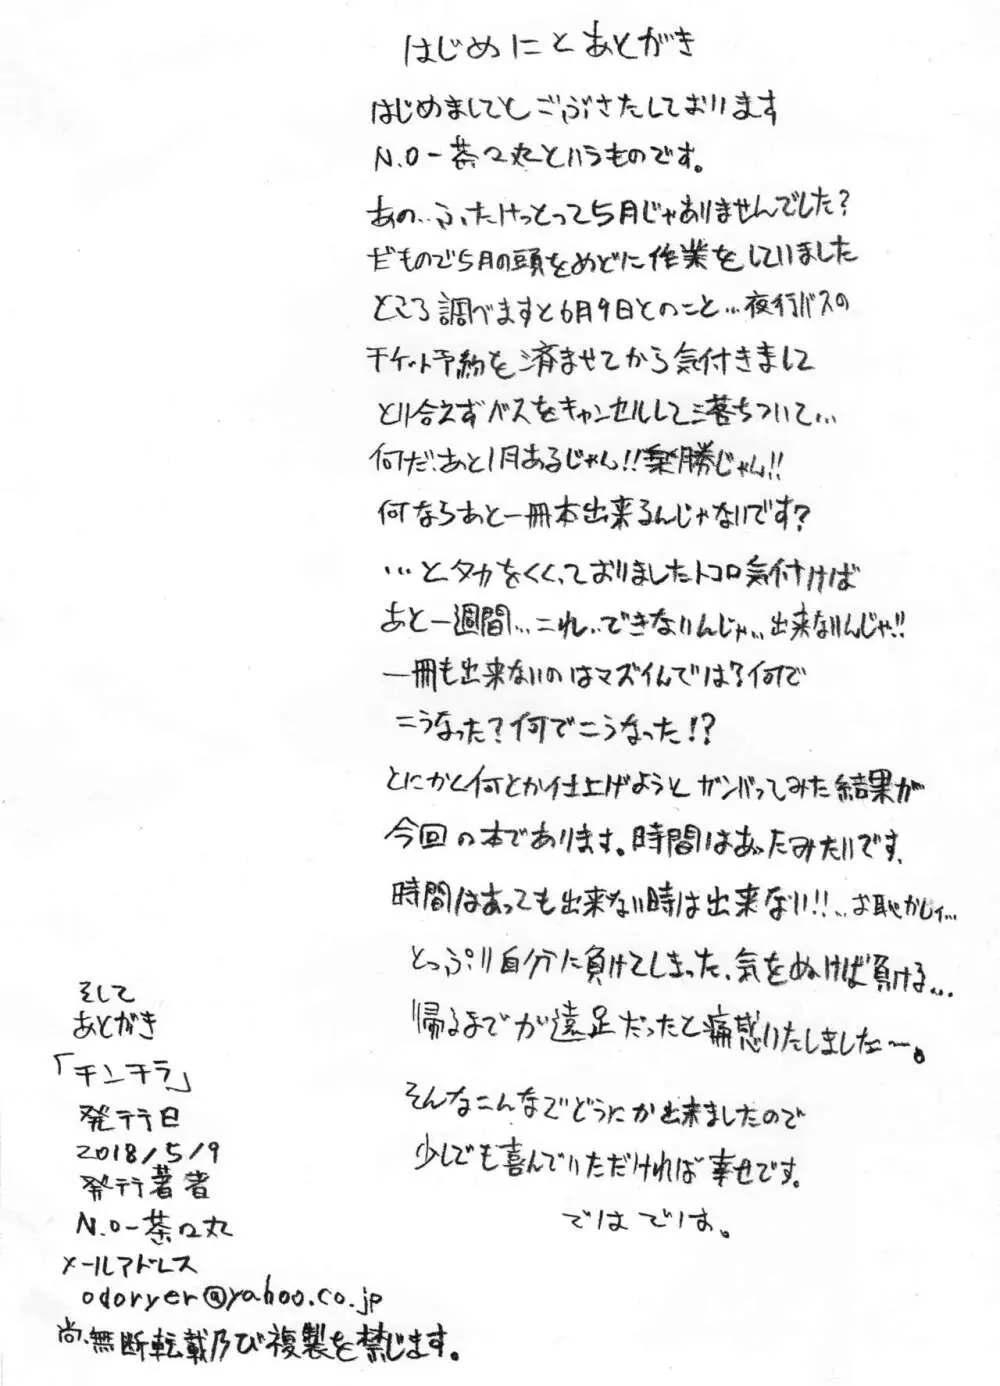 はじめにとあとがき
はじめましてとごぶさたしております
N.O-茶々丸というものです。
あの…ふたけっとって5月じゃありませんでした?
だもので5月の頭をめどに作業をしていました
ところ調べますと6月9日とのこと…夜行バスの
チケット予約を済ませてから気付きまして
とり合えずバスをキャンセルして落ちついて…
何だ、あと1月あるじゃん!!楽勝じゃん!!
何ならあと一冊本出来るんじゃないです?
…とタカをくくっておりましたトコロ気付けば
あと一週間…これ…できないんじゃ…出来ないんじゃ!!
一冊も出来ないのはマズイんでは?何で
こうなった?何でこうなった!?
とにかく何とか仕上げようとガンバってみた結果が
今回の本であります。時間はあったみたいです、
時間はあっても出来ない時は出来ない!!…お恥かしィ…
とっぷり自分に負けてしまった、気をぬけば負ける…
帰るまでが遠足だったと痛感いたしました〜。
そんなこんなでどうにか出来ましたので
少しでも喜んでいただければ幸せです。
ではでは。
そして
あとがき
「チンチラ」
発行日
2018/5/9
発行著者
N.O-茶々丸
メールアドレス
odoryer@yahoo.co.jp
尚、無断転載乃び複製を禁じます。